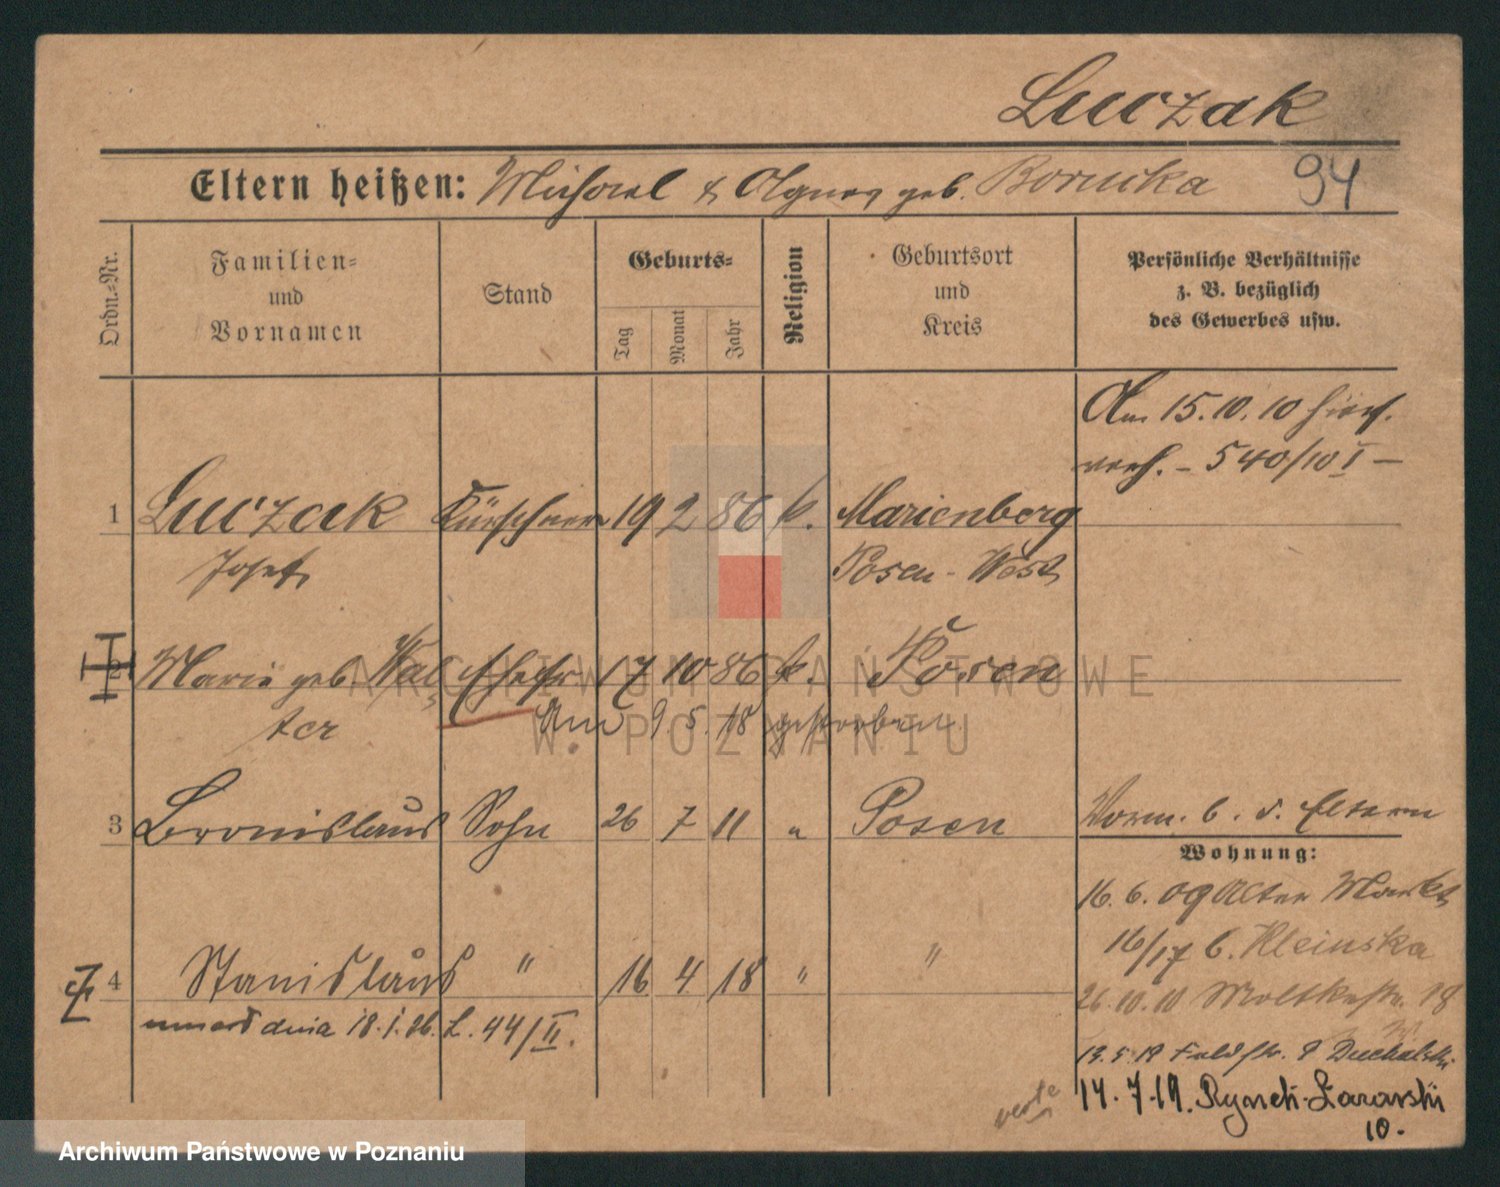 Luczak
Eltern heißen: Michael & Agnes geb. Bornicka 94
Ordn.-Nr.
Familien-
und
Vornamen
Stand
Geburts-
Tag
Monat
Jahr
Religion
Geburtsort
und
Kreis
Persönliche Verhältnisse
z. B. bezüglich
des Gewerbes usw.
Am 15.10.10 hier
verh. – 540/10 I –
1 Luczak Kürschner 19 2 86 k. Marienberg
Josef Posen-West
2 Marie geb. Wal Ehefr. 17 10 86 k. Posen
ter Am 9.5.18 gestorben.
3 Bronislaus Sohn 26 7 11 " Posen
Vorm. b. d. Eltern
Wohnung:
16.6.09 Alter Markt
16/17 b. Kleinska
4 Stanislaus " 16 4 18 " "
26.10.10 Moltkestr. 18
umarł dnia 18.1.26. L. 44/II.
13.5.19 Feldstr. 9 Duchalski
14.7.19. Rynek-Łazarski
10.
verte
ARCHIWUM PAŃSTWOWE
W POZNANIU
Archiwum Państwowe w Poznaniu